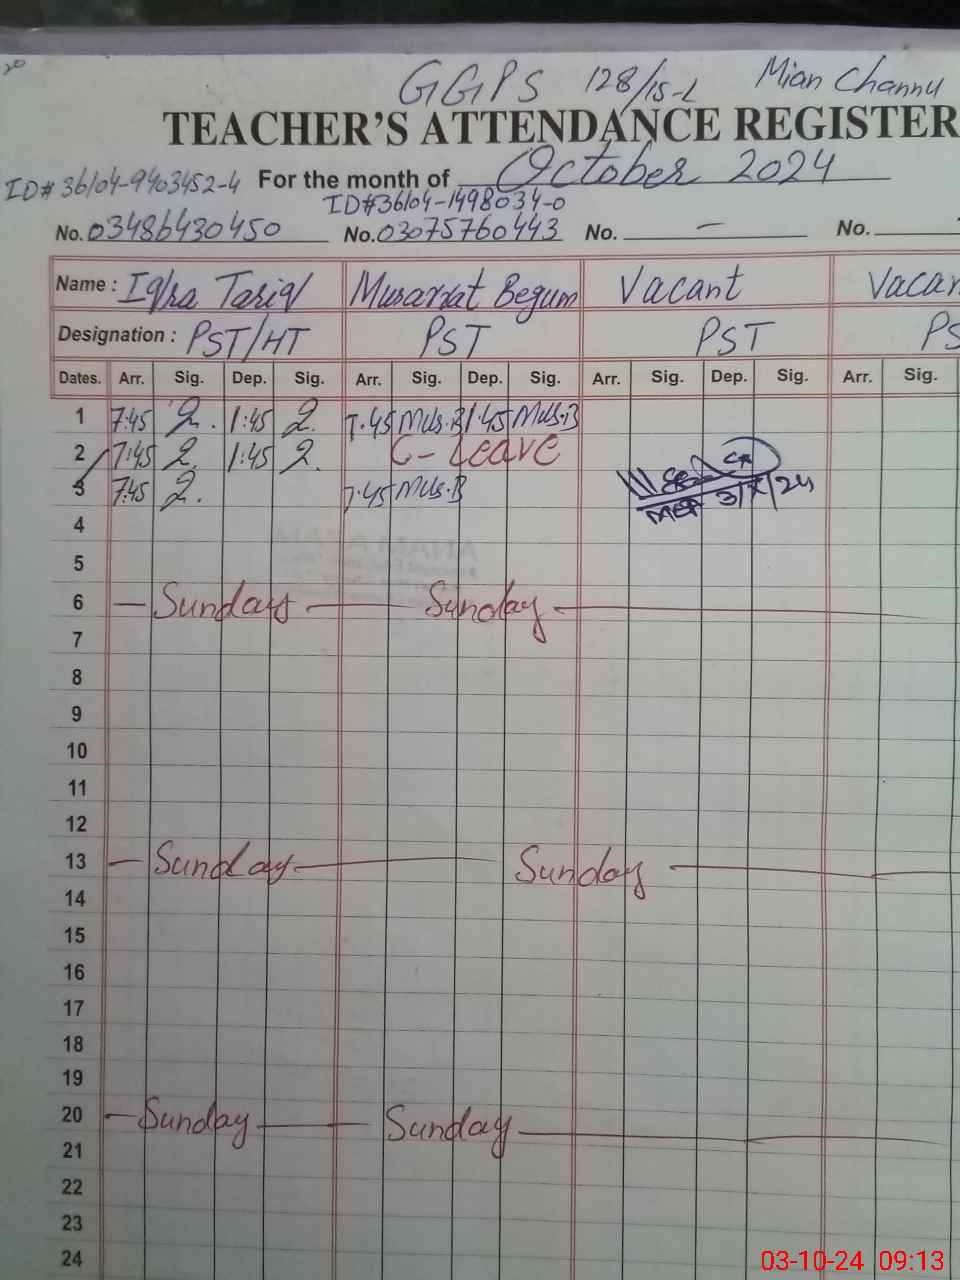 20
GGPS 128/15-L Mian Channu
TEACHER'S ATTENDANCE REGISTER
ID# 36104-9403452-4 For the month of October 2024
ID#36104-1498034-0
No. 03486430450 No. 03075760443 No. — No.
Name : Iqra Tariq Musarrat Begum Vacant Vacan
Designation : PST/HT PST PST PS
Dates. Arr. Sig. Dep. Sig. Arr. Sig. Dep. Sig. Arr. Sig. Dep. Sig. Arr. Sig.
1 7:45 1:45 7.45 Mus.B 1:45 Mus.B
2 7:45 1:45 C-Leave
3 7:45 7.45 Mus.B MEA 3/X/24
4
5
6 — Sunday — Sunday —
7
8
9
10
11
12
13 — Sunday — Sunday —
14
15
16
17
18
19
20 — Sunday — Sunday —
21
22
23
24
03-10-24 09:13